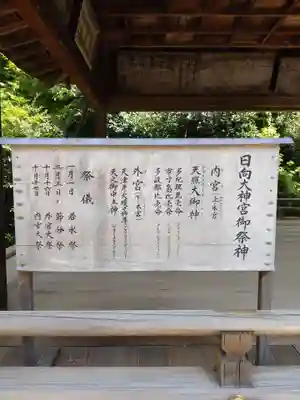 日向大神宮御祭神
内宮（上ノ本宮）
天照大御神
多紀理毘売命
市寸島比売命
多岐都比売命
外宮（下ノ本宮）
天津彦火瓊々杵尊
天之御中主神
祭儀
一月一日 若水祭
二月三日 節分祭
十月十六日 外宮大祭
十月十七日 内宮大祭